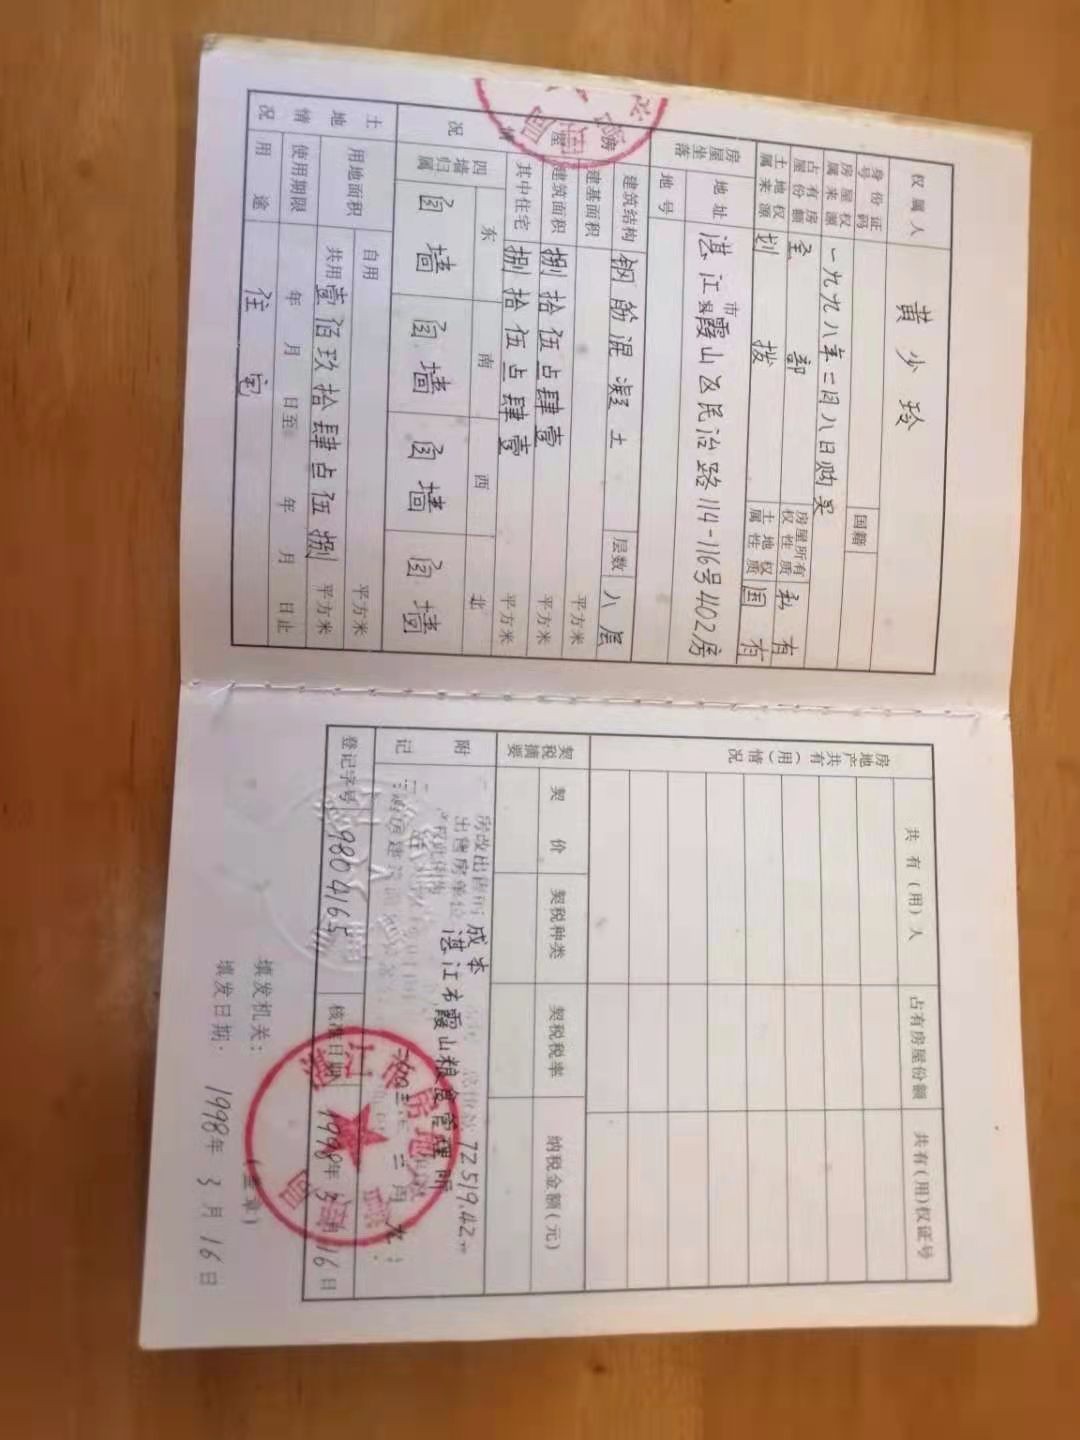 权属人 黄少玲
身份证号码 国籍
房屋权属来源 一九九八年二月八日购买
占有房屋份额 全部 房屋所有权性质 私有
土地权属来源 划拨 土地权属性质 国有
房屋坐落 地址 湛江市县霞山区民治路114-116号402房
地号
房屋情况
建筑结构 钢筋混凝土 层数 八层
建基面积 平方米
建筑面积 捌拾伍占肆壹 平方米
其中住宅 捌拾伍占肆壹 平方米
四墙归属 东 南 西 北
自墙 自墙 自墙 自墙
土地情况
用地面积 自用 平方米
共用壹佰玖拾肆占伍捌 平方米
使用期限 年 月 日至 年 月 日止
用途 住宅
房地产共有(用)情况
共有(用)人 占有房屋份额 共有(用)权证号
契税摘要 契价 契税种类 契税税率 纳税金额(元)
附记
房改出售 成本 72519.42
出售房单位 湛江市霞山粮食管理所
登记字号 9804165 核准日期 1998年3月16日
填发机关: (盖章)
填发日期: 1998年3月16日